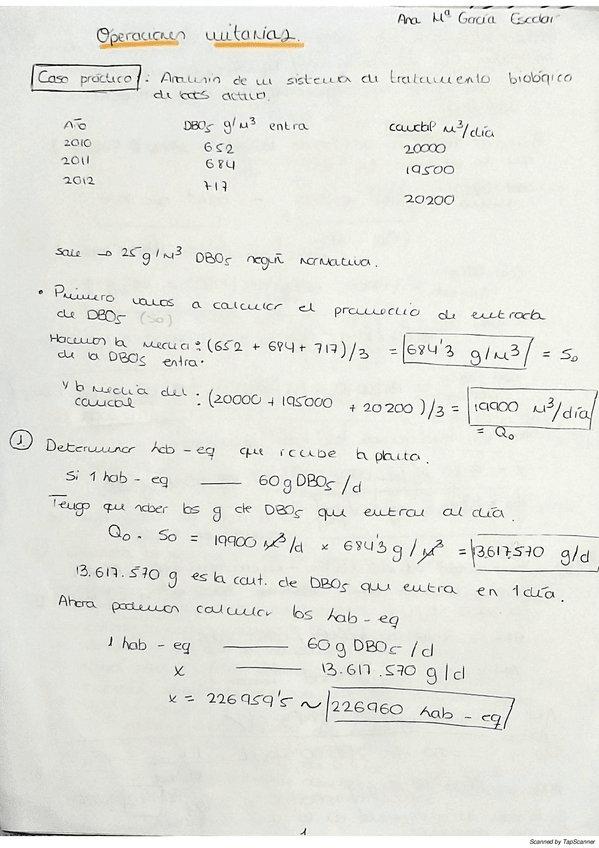 Ana Mª García Escolar
Operaciones unitarias.
Caso práctico: Análisis de un sistema de tratamiento biológico
de lodos activo.
Año DBO5 g/M³ entra caudal M³/día
2010 652 20000
2011 684 19500
2012 717 20200
Sale → 25 g/M³ DBO5 según normativa.
• Primero vamos a calcular el promedio de entrada
de DBO5 (So)
Hacemos la media: (652 + 684 + 717)/3 = 684'3 g/M³ = So
de la DBO5 entra.
y la media del : (20000 + 195000 + 20200)/3 = 19900 M³/día
caudal
= Qo
1. Determinar hab-eq que recibe la planta.
Si 1 hab-eq —— 60 g DBO5/d
Tengo que saber los g de DBO5 que entran al día.
Qo · So = 19900 M³/d x 684'3 g/M³ = 13.617.570 g/d
13.617.570 g es la cant. de DBO5 que entra en 1 día.
Ahora podemos calcular los hab-eq
1 hab-eq —— 60 g DBO5/d
x —— 13.617.570 g/d
x = 226959'5 ~ 226960 hab-eq
1
Scanned by TapScanner